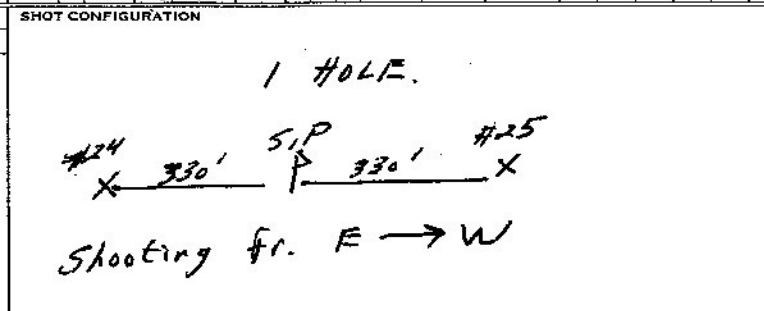 SHOT CONFIGURATION
1 HOLE.
#24 330' S.P 330' #25
X P X
Shooting fr. E → W